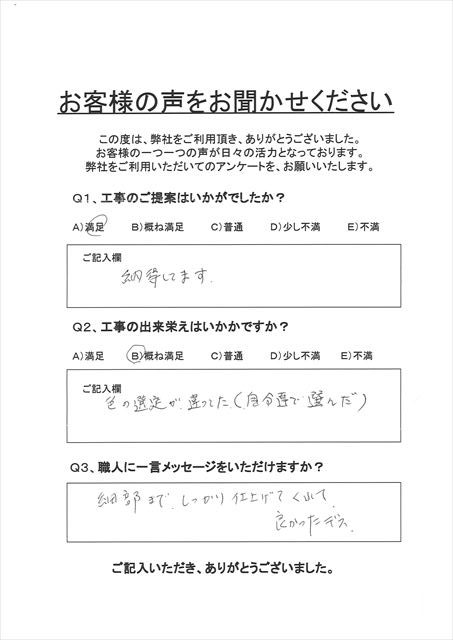 お客様の声をお聞かせください
この度は、弊社をご利用頂き、ありがとうございました。
お客様の一つ一つの声が日々の活力となっております。
弊社をご利用いただいてのアンケートを、お願いいたします。
Q1、工事のご提案はいかがでしたか？
A)満足 B)概ね満足 C)普通 D)少し不満 E)不満
ご記入欄
納得してます.
Q2、工事の出来栄えはいかかですか？
A)満足 B)概ね満足 C)普通 D)少し不満 E)不満
ご記入欄
色の選定が、違ってた(自分達で選んだ)
Q3、職人に一言メッセージをいただけますか？
細部まで、しっかり仕上げてくれて、
良かったデス.
ご記入いただき、ありがとうございました。